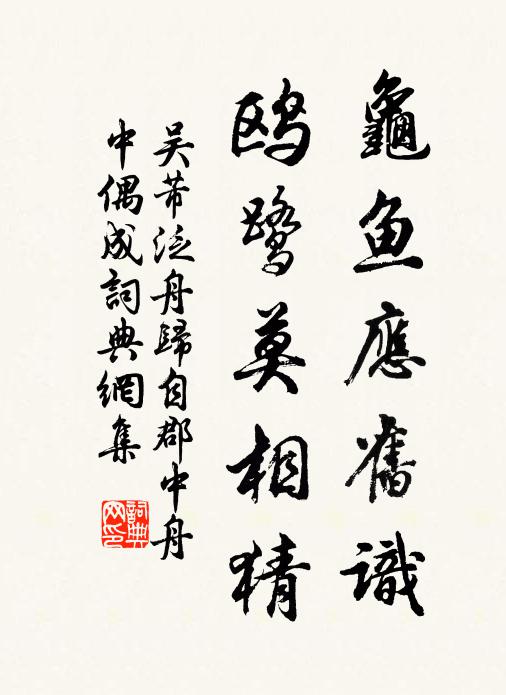 龜鱼應舊識
鸥鹭莫相猜
吴芾泛舟歸自郡中舟
中偶成詞典網集
詞典
网印